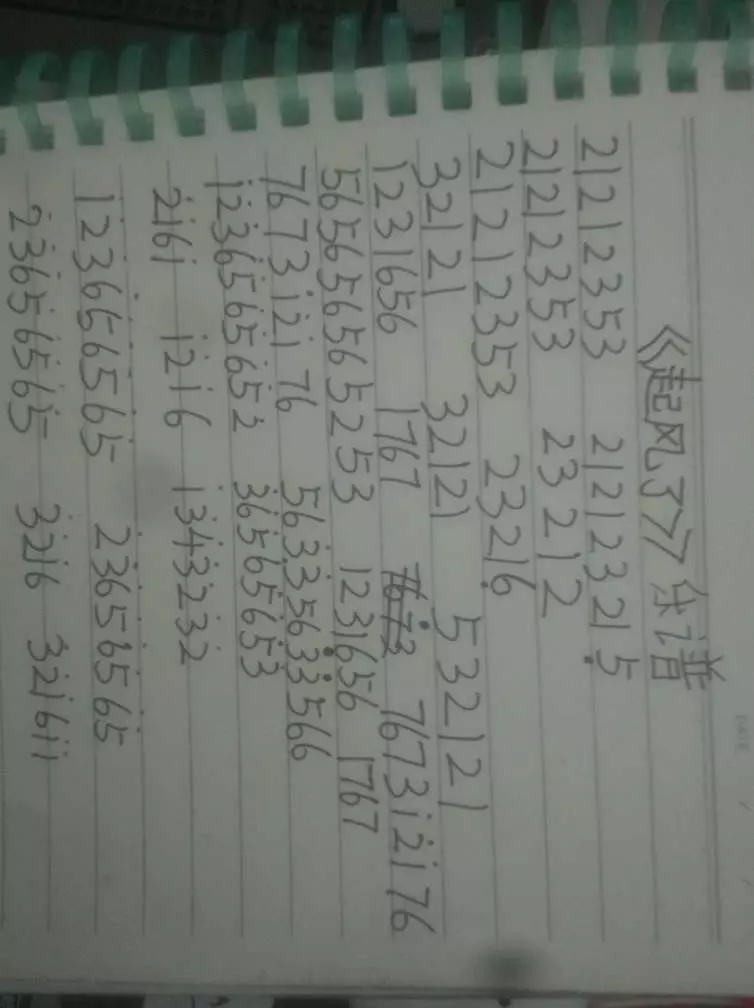 《起风了》乐谱
21212353 212123215̣
21212353 23212
21212353 23216̣
32121 32121 532121
1231656 1767 7673i̇2̇i̇76
565656565253 1231656 1767
7673i̇2̇i̇76 56335633566
i̇2̇3̇6̇5̇6̇5̇6̇5̇2̇ 3̇6̇5̇6̇5̇6̇5̇3̇
2̇i̇6i̇ i̇2̇i̇6 i̇3̇4̇3̇2̇3̇2̇
i̇2̇3̇6̇5̇6̇5̇6̇5̇ 2̇3̇6̇5̇6̇5̇6̇5̇
2̇3̇6̇5̇6̇5̇6̇5̇ 3̇2̇i̇6 3̇2̇i̇6i̇i̇